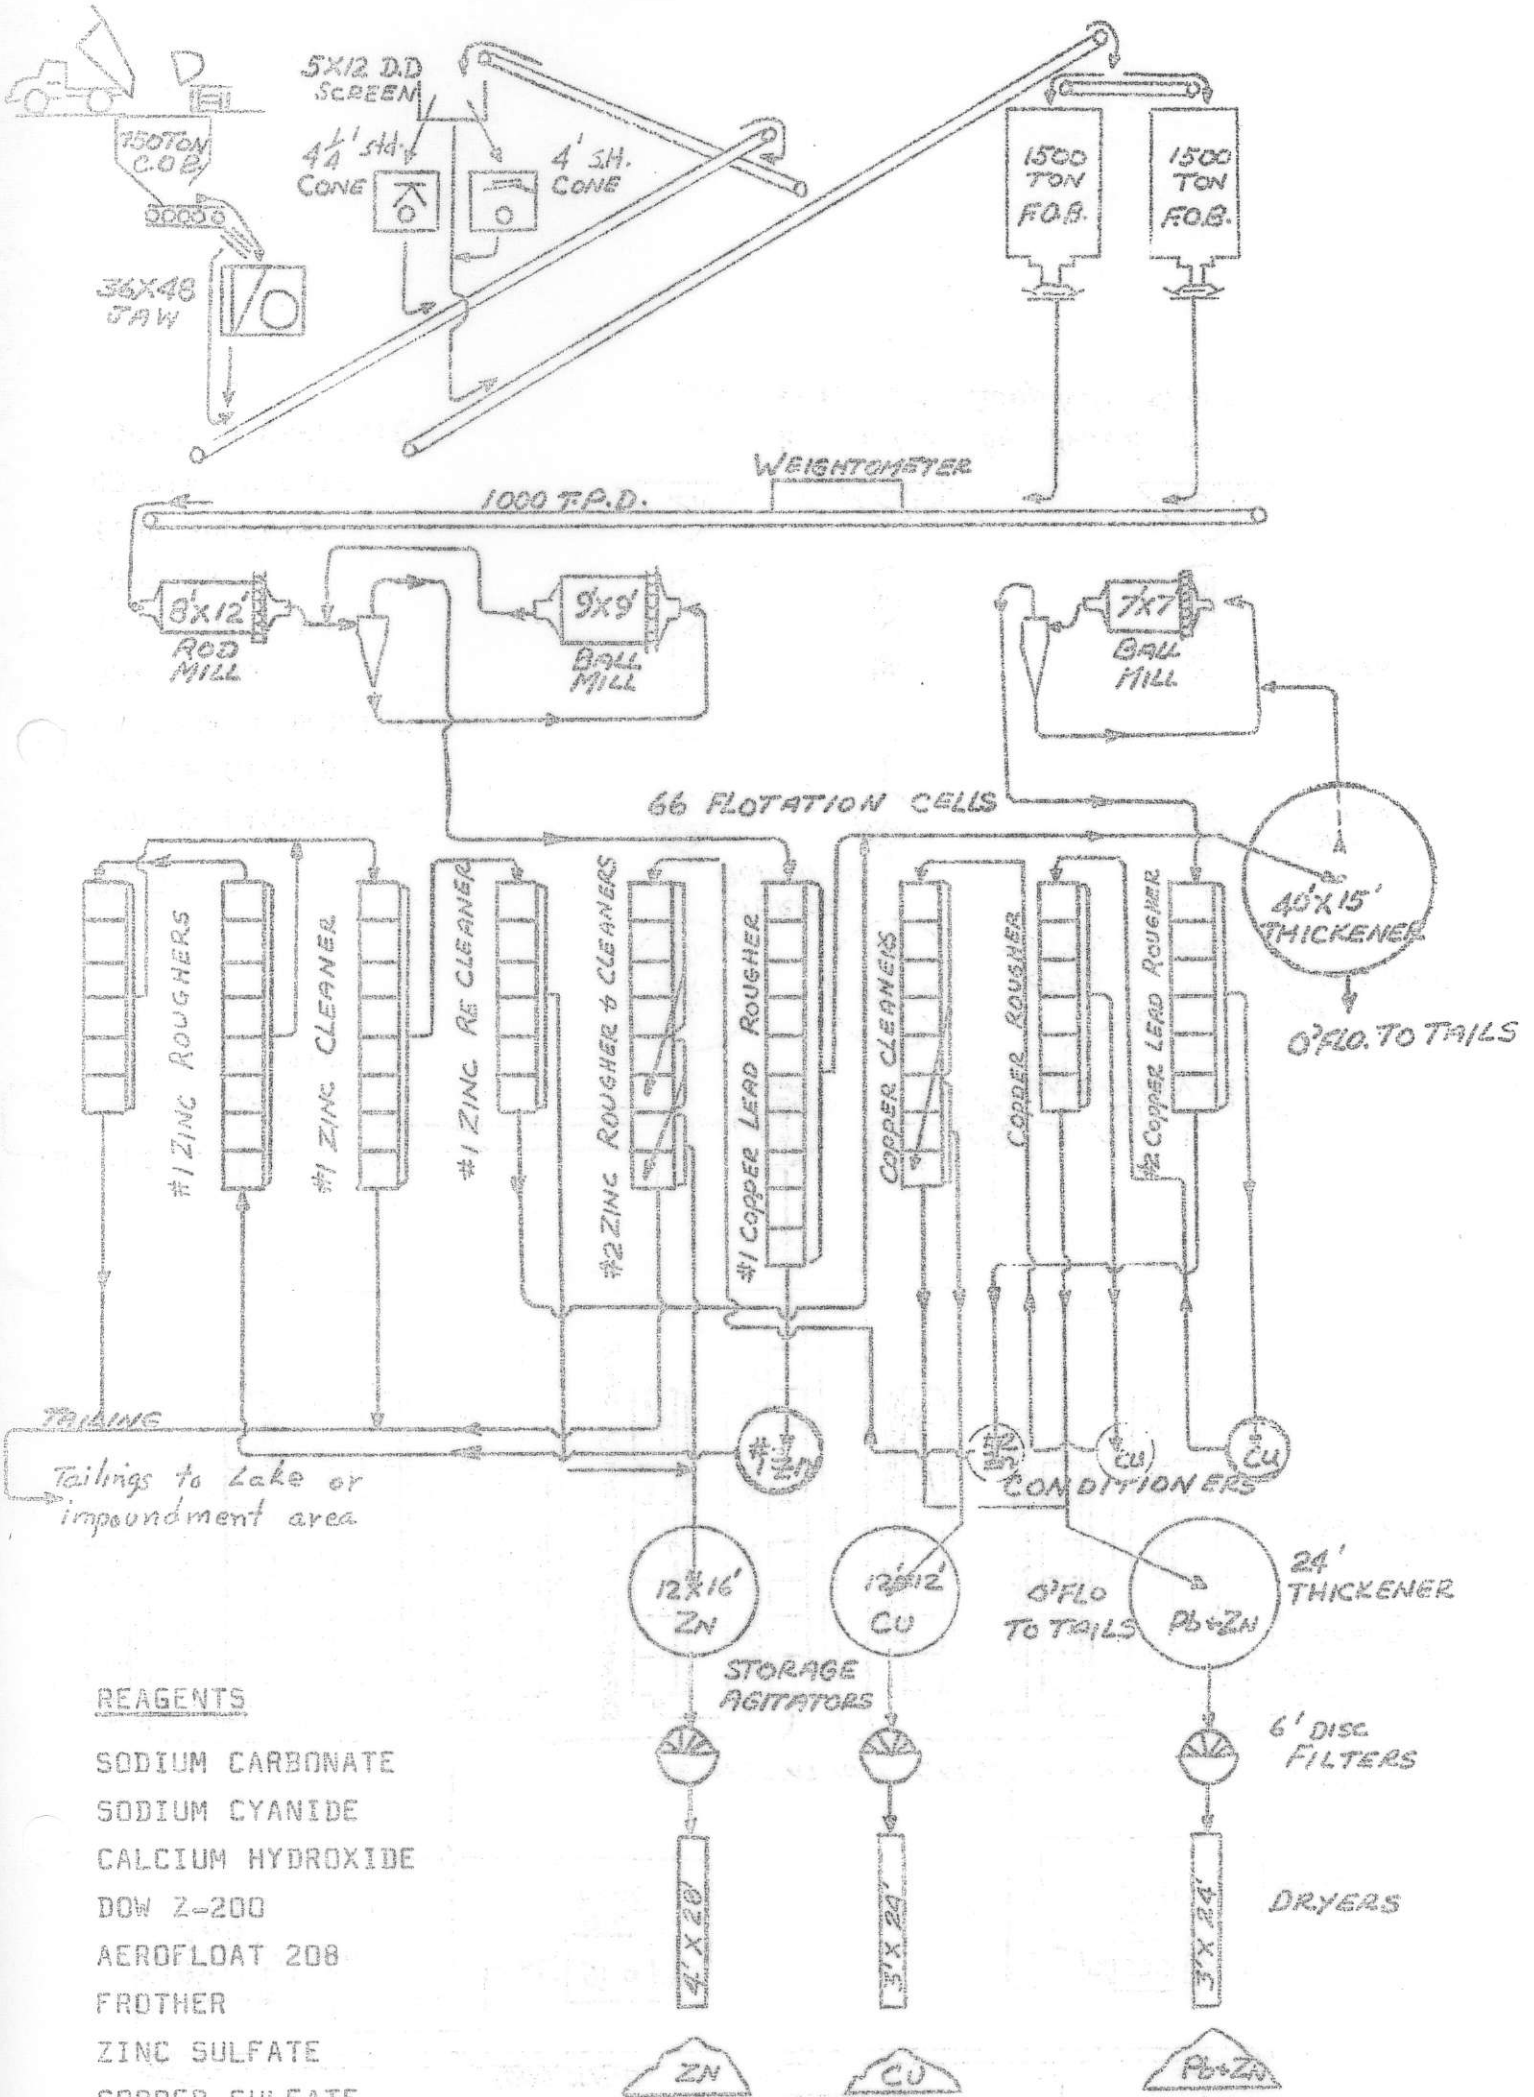 5X12 D.D
SCREEN
750 TON
C.O.B.
4 1/4' std.
CONE
4' S.H.
CONE
1500
TON
F.O.B.
1500
TON
F.O.B.
36X48
JAW
WEIGHTOMETER
1000 T.P.D.
8'X12'
ROD
MILL
9'X9'
BALL
MILL
7'X7'
BALL
MILL
66 FLOTATION CELLS
40'X15'
THICKENER
O'FLO. TO TAILS
#1 ZINC ROUGHERS
#1 ZINC CLEANER
#1 ZINC RE CLEANER
#2 ZINC ROUGHER & CLEANERS
#1 COPPER LEAD ROUGHER
COPPER CLEANERS
COPPER ROUGHER
#2 COPPER LEAD ROUGHER
TAILING
Tailings to Lake or
impoundment area
#1 ZN
#2 ZN
CU
CU
CONDITIONERS
12'X16'
ZN
12'X12'
CU
O'FLO
TO TAILS
Pb+ZN
24'
THICKENER
STORAGE
AGITATORS
6' DISC
FILTERS
4' X 20'
3' X 24'
3' X 24'
DRYERS
ZN
CU
Pb+ZN
REAGENTS
SODIUM CARBONATE
SODIUM CYANIDE
CALCIUM HYDROXIDE
DOW Z-200
AEROFLOAT 208
FROTHER
ZINC SULFATE
COPPER SULFATE